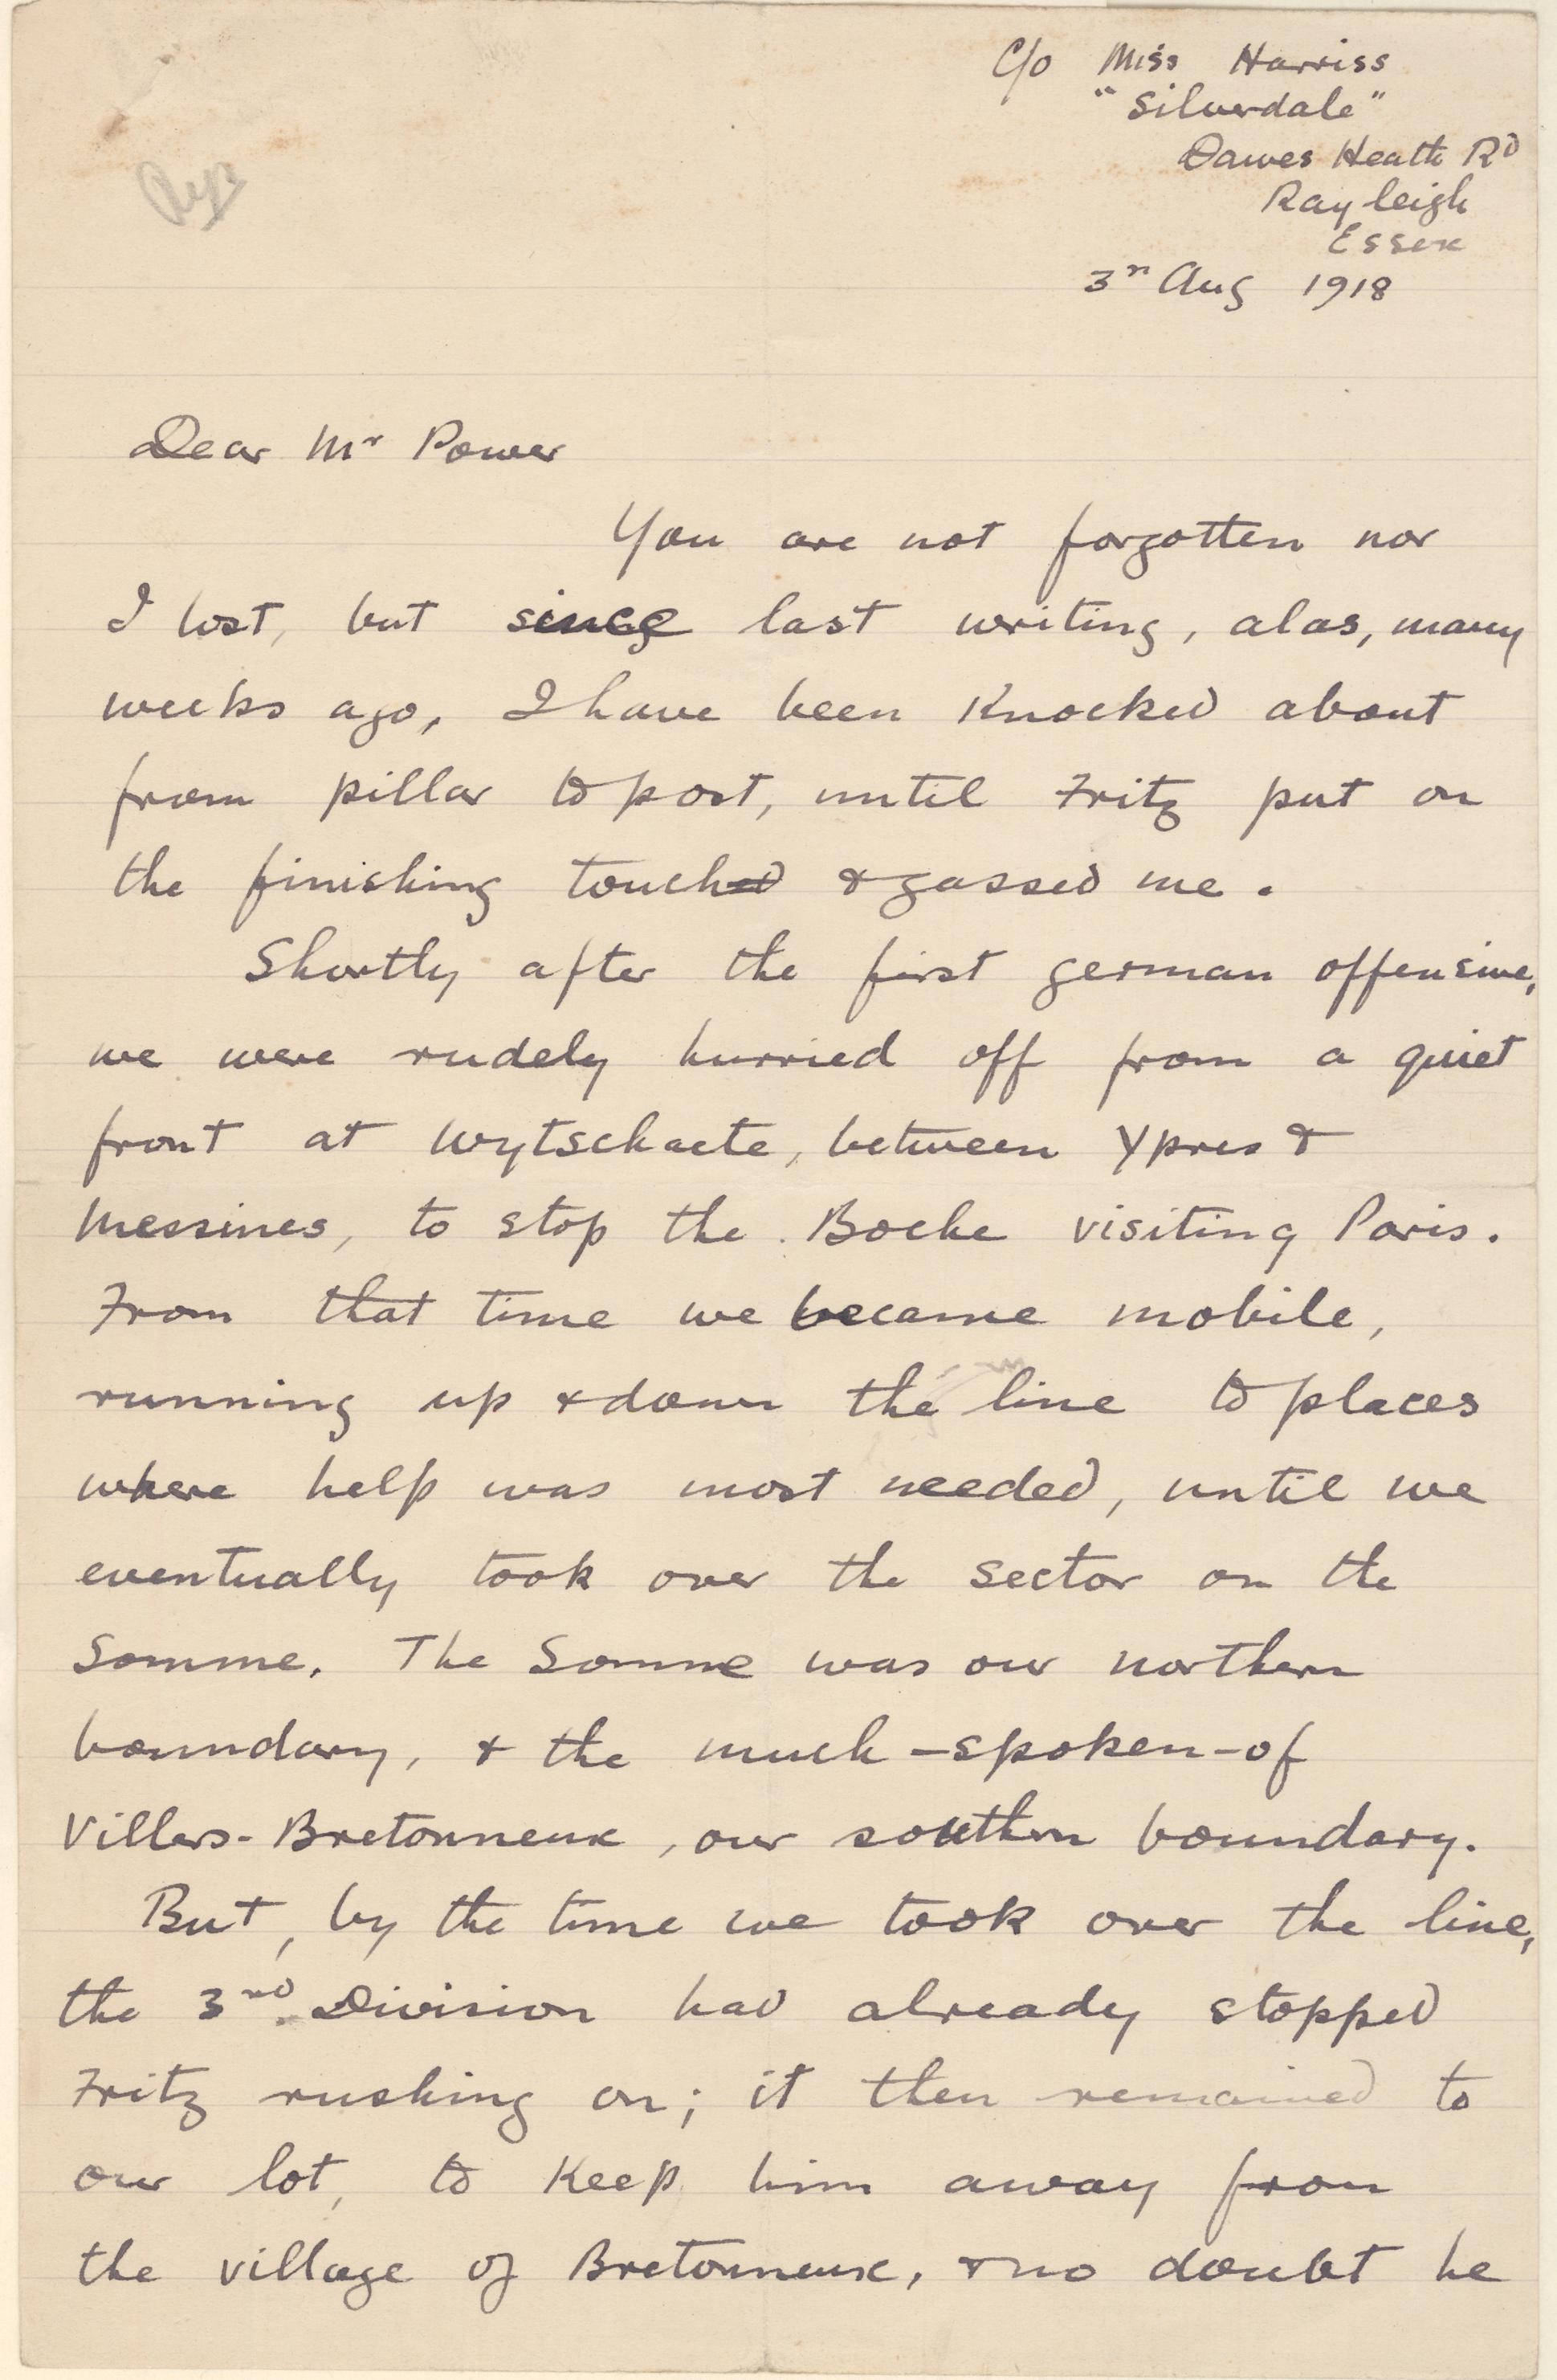 C/o Miss Harriss
"Silverdale"
Dawes Heath Rd
Rayleigh
Essex
3rd Aug 1918
Dear Mr Power
You are not forgotten nor
I lost, but since last writing, alas, many
weeks ago, I have been knocked about
from pillar to post, until Fritz put on
the finishing touch & gassed me.
Shortly after the first german offensive,
we were rudely hurried off from a quiet
front at Wytschaete, between Ypres &
Messines, to stop the Boche visiting Paris.
From that time we became mobile,
running up & down the line to places
where help was most needed, until we
eventually took over the sector on the
Somme. The Somme was our northern
boundary, & the much-spoken-of
Villers-Bretonneux, our southern boundary.
But, by the time we took over the line,
the 3rd Division had already stopped
Fritz rushing on; it then remained to
our lot, to keep him away from
the village of Bretonneux, & no doubt he